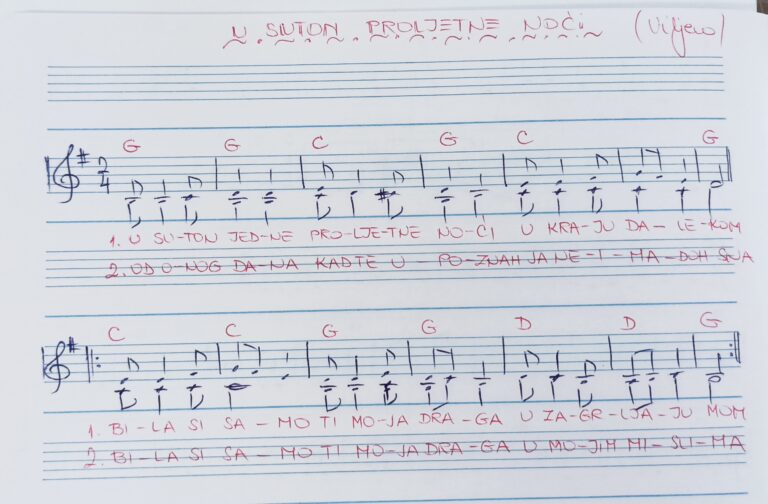 U SUTON PROLJETNE NOĆI (Viljevo)
G G C G C G
2/4
1. U SU-TON JED-NE PRO-LJE-TNE NO-ĆI U KRA-JU DA-LE-KOM
2. OD O-NOG DA-NA KAD TE U-PO-ZNAH JA NE-I-MA-DOH SNA
C C G G D D G
1. BI-LA SI SA-MO TI MO-JA DRA-GA U ZA-GR-LJA-JU MOM
2. BI-LA SI SA-MO TI MO-JA DRA-GA U MO-JIH MI-SLI-MA